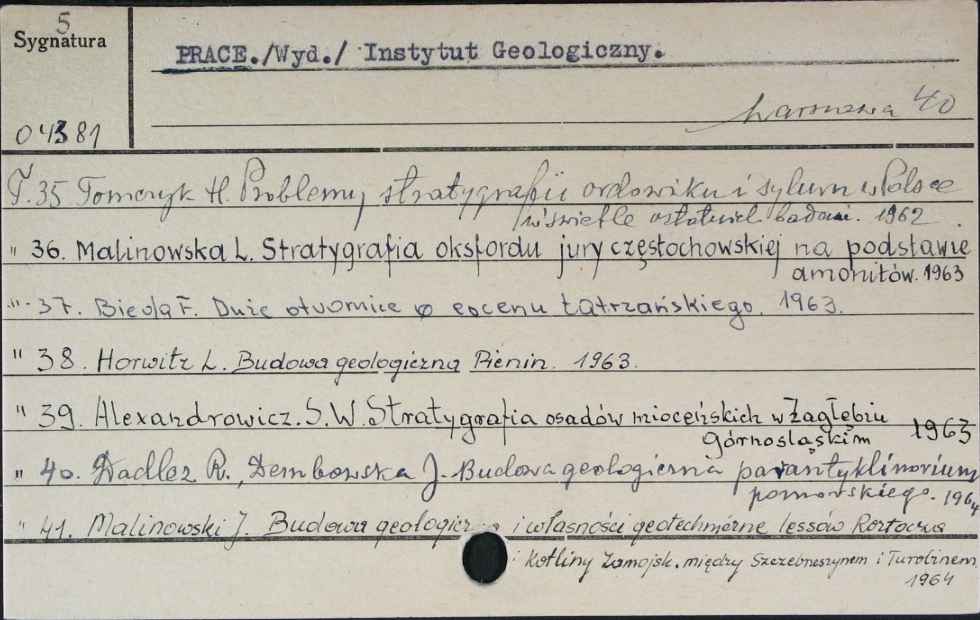 5
Sygnatura
PRACE./Wyd./ Instytut Geologiczny.
Warszawa 40
04381
T. 35 Tomczyk H. Problemy stratygrafii ordowiku i syluru w Polsce
w świetle ostatnich badań. 1962
" 36. Malinowska L. Stratygrafia oksfordu jury częstochowskiej na podstawie
amonitów. 1963
" 37. Bieda F. Duże otwornice eocenu tatrzańskiego. 1963.
" 38. Horwitz L. Budowa geologiczna Pienin. 1963.
" 39. Alexandrowicz. S.W. Stratygrafia osadów mioceńskich w Zagłębiu
Górnośląskim 1963
" 40. Dadlez R., Dembowska J. Budowa geologiczna parantyklinorium
pomorskiego. 1964
" 41. Malinowski J. Budowa i własności geotechniczne lessów Roztocza
i Kotliny Zamojsk. między Szczebrzeszynem i Turobinem
1964